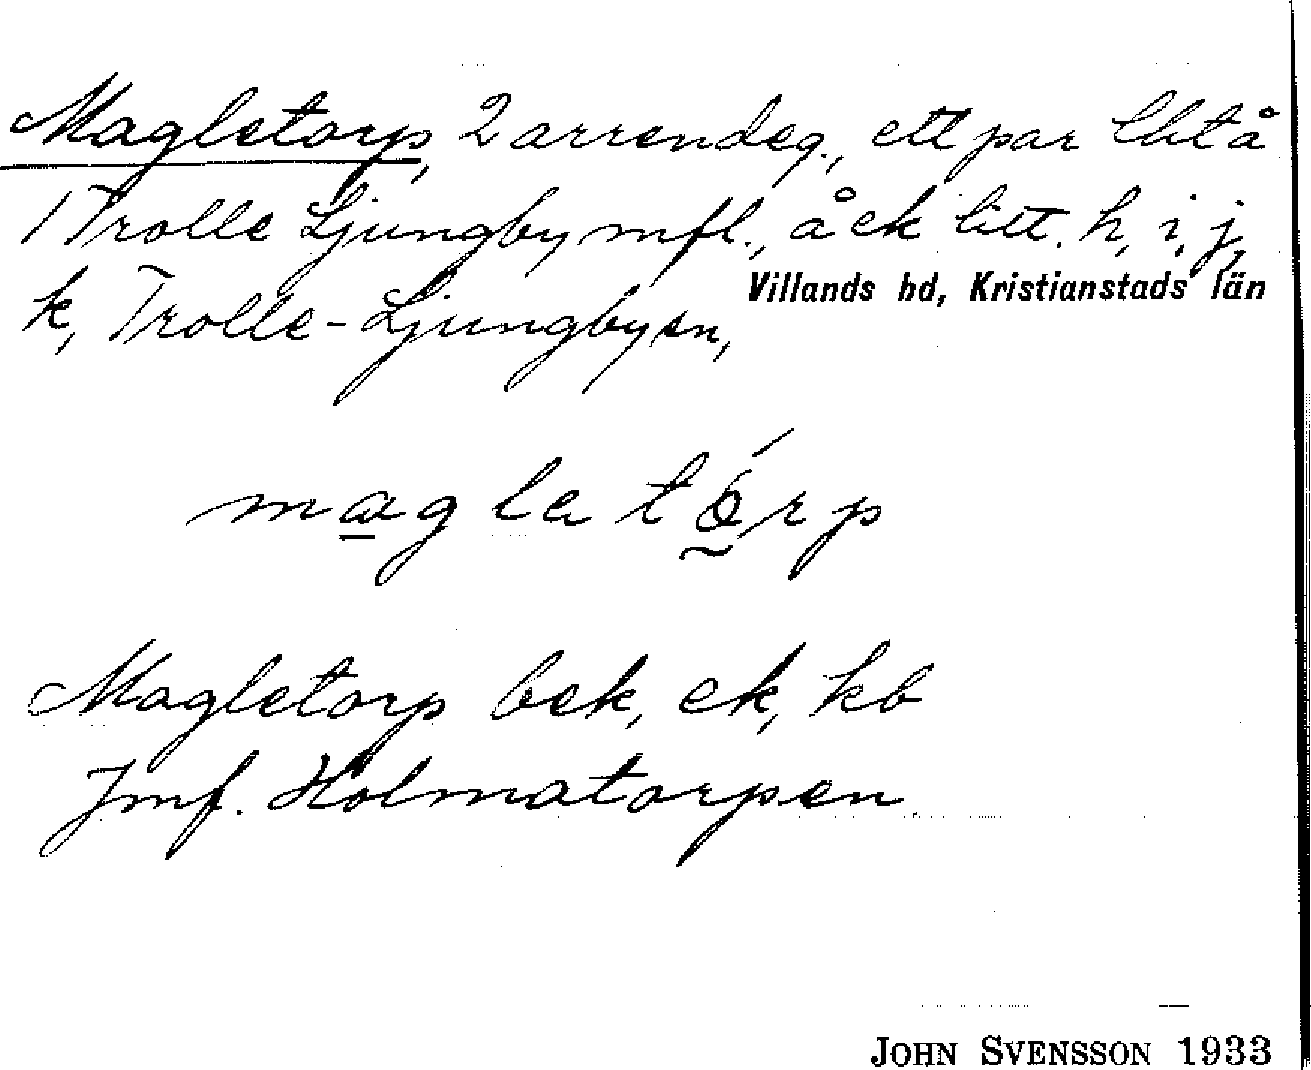 Magletorp, 2 arrendeg., ett par lht å
1 Trolle Ljungby mfl., å ek litt. h, i, j,
k, Trolle-Ljungby sn,
Villands hd, Kristianstads län
magla tórp
Magletorp bek, ek, kb
Jmf. Holmatorpen.
JOHN SVENSSON 1933